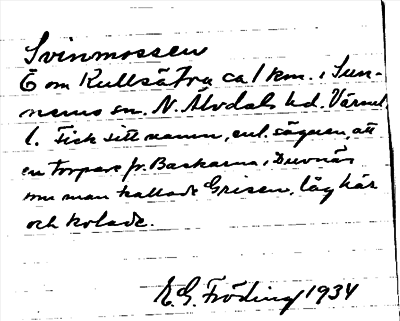 Svinmossen
Ö om Kullsätra ca 1 km. i Sun-
nemo sn. N. Älvdals hd. Värml.
l. Fick sitt namn, enl. sägnen, att
en torpare fr. Backarna, i Duvnäs
som man kallade Grisen, låg här
och kolade.
E. G. Fröding 1934